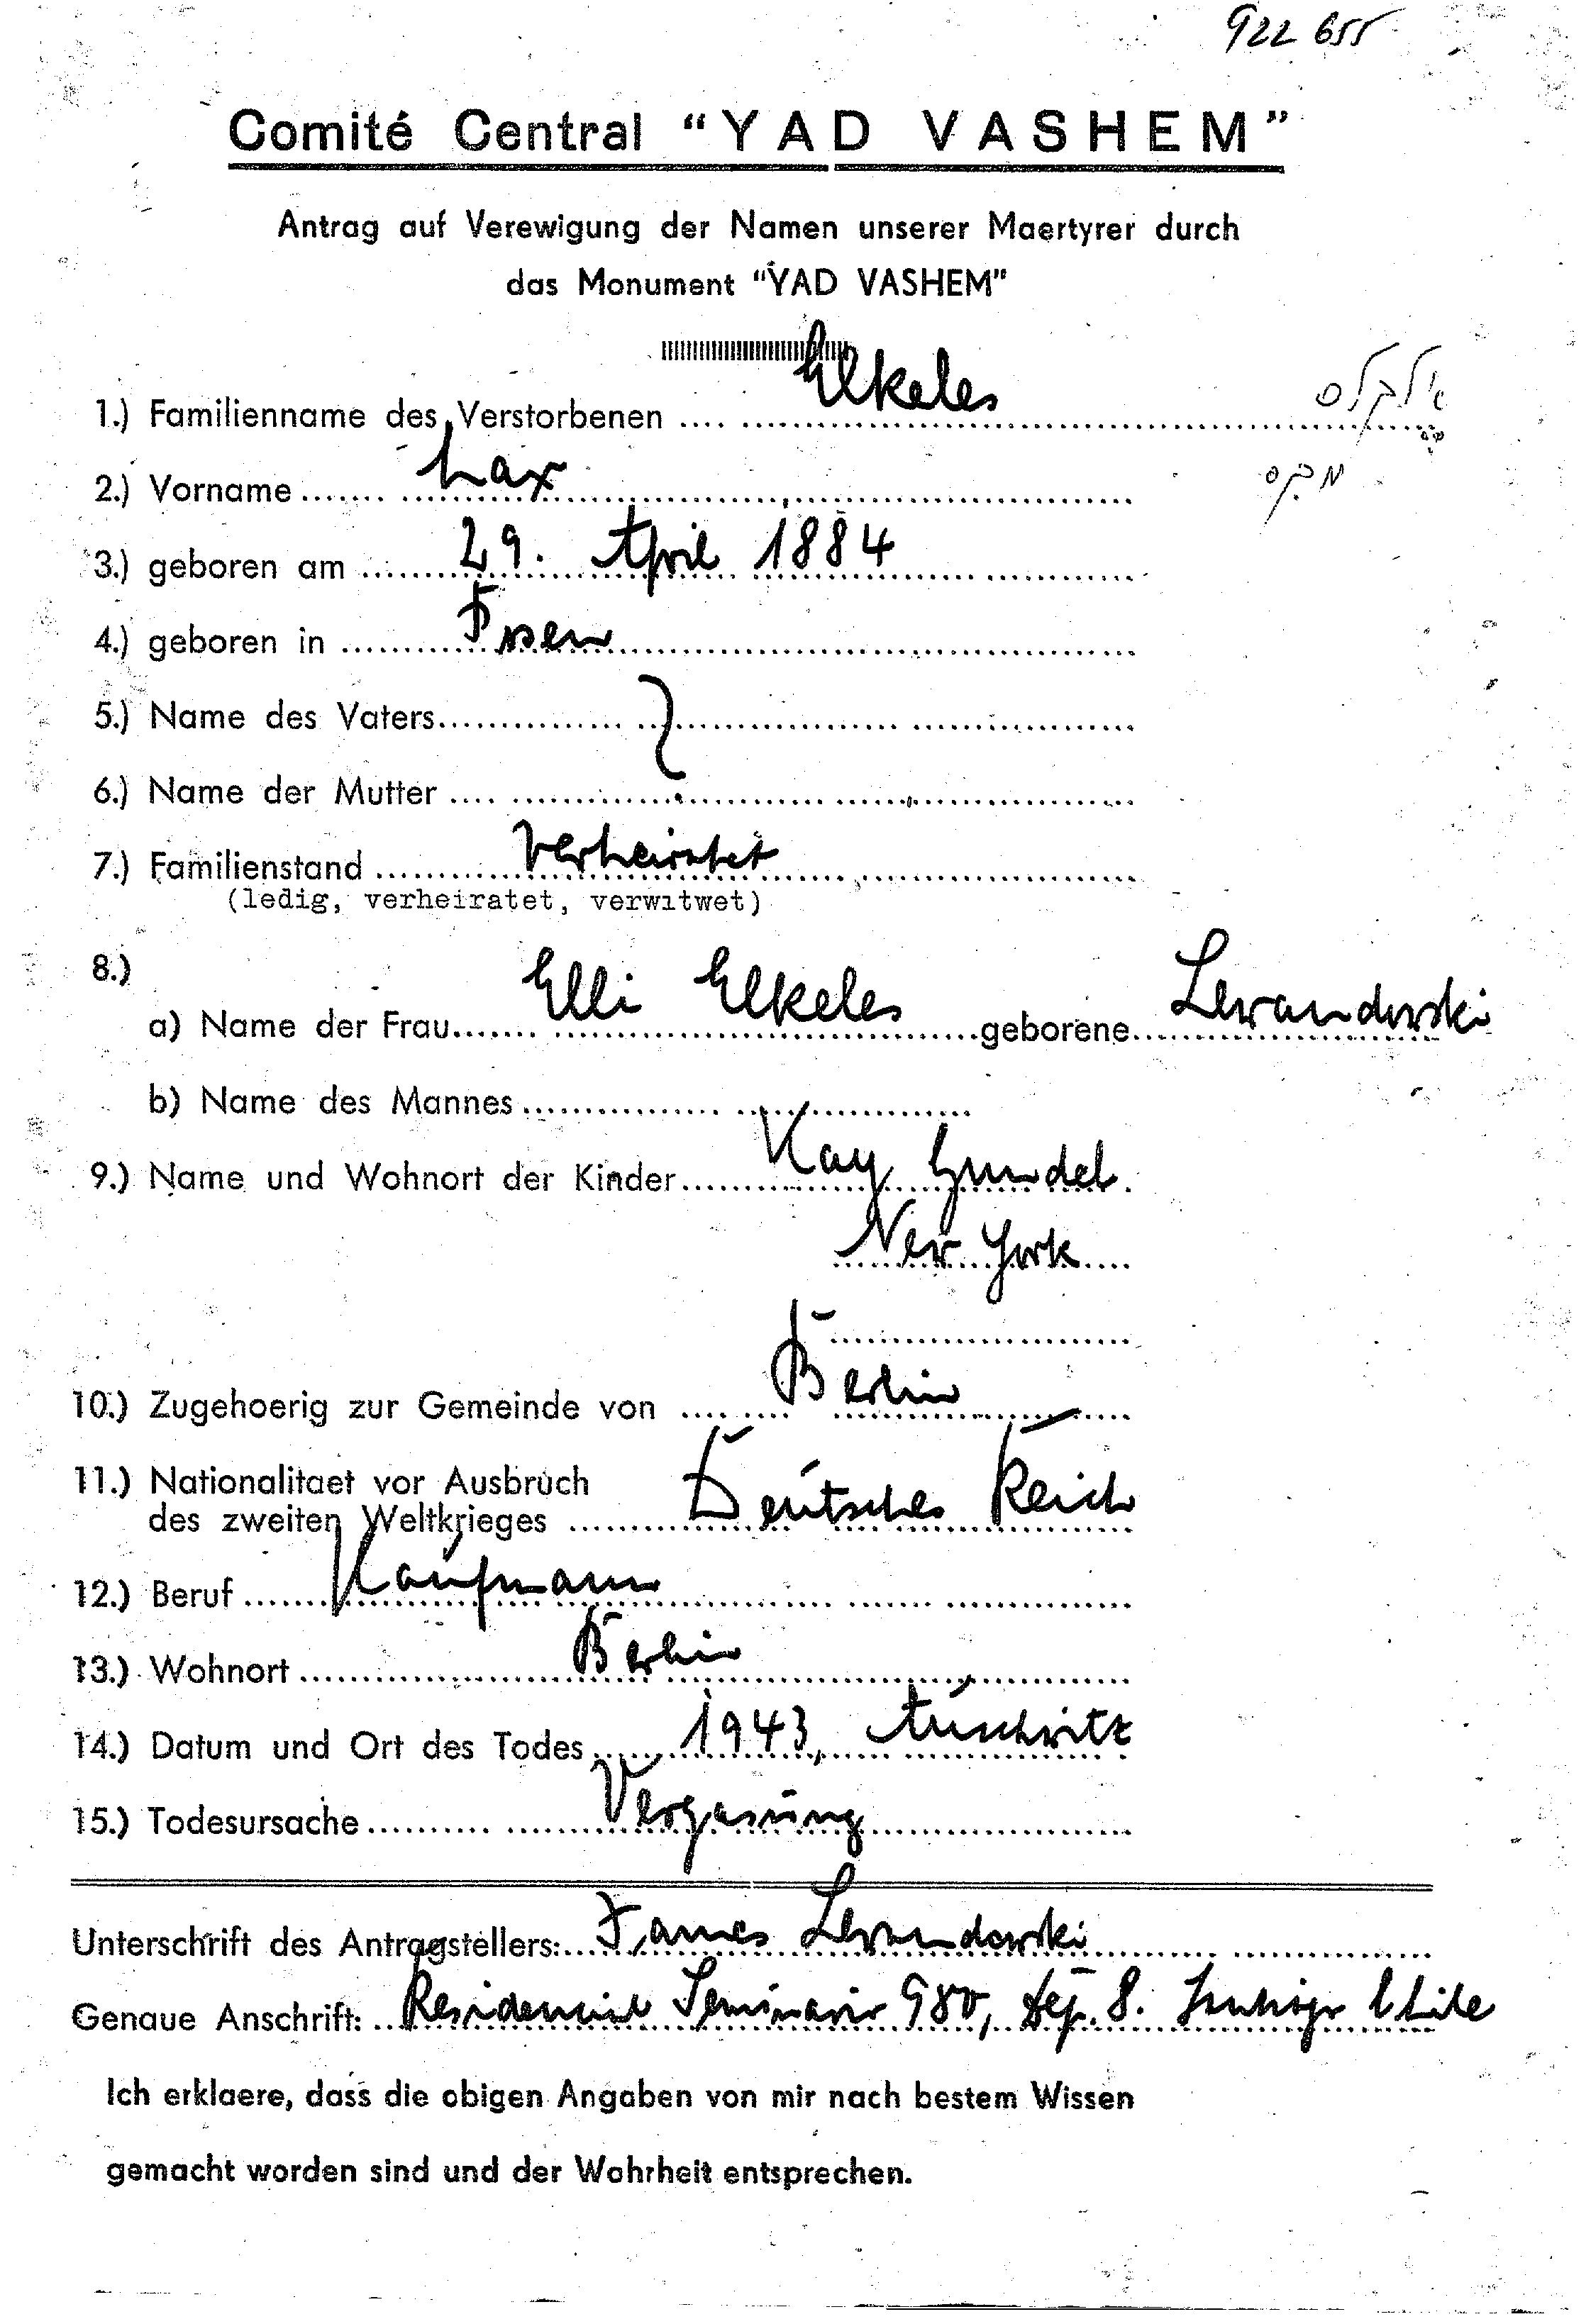 922 655
Comité Central "YAD VASHEM"
Antrag auf Verewigung der Namen unserer Maertyrer durch
das Monument "YAD VASHEM"
1.) Familienname des Verstorbenen .... Elkeles אלקלס
2.) Vorname ....... Max מקס
3.) geboren am ....... 29. April 1884
4.) geboren in ....... Posen
5.) Name des Vaters.......
6.) Name der Mutter ....
7.) Familienstand ....... verheiratet
(ledig, verheiratet, verwitwet)
8.)
a) Name der Frau....... Elli Elkeles geborene Lewandowski
b) Name des Mannes.......
9.) Name und Wohnort der Kinder....... Kay Gundel
New York
10.) Zugehoerig zur Gemeinde von .... Berlin
11.) Nationalitaet vor Ausbruch
des zweiten Weltkrieges ....... Deutsches Reich
12.) Beruf ....... Kaufmann
13.) Wohnort ....... Berlin
14.) Datum und Ort des Todes ....... 1943, Auschwitz
15.) Todesursache ....... Vergasung
Unterschrift des Antragstellers: James Lewandowski
Genaue Anschrift: Seminario 980, Dep. 8. Chile
Ich erklaere, dass die obigen Angaben von mir nach bestem Wissen
gemacht worden sind und der Wahrheit entsprechen.